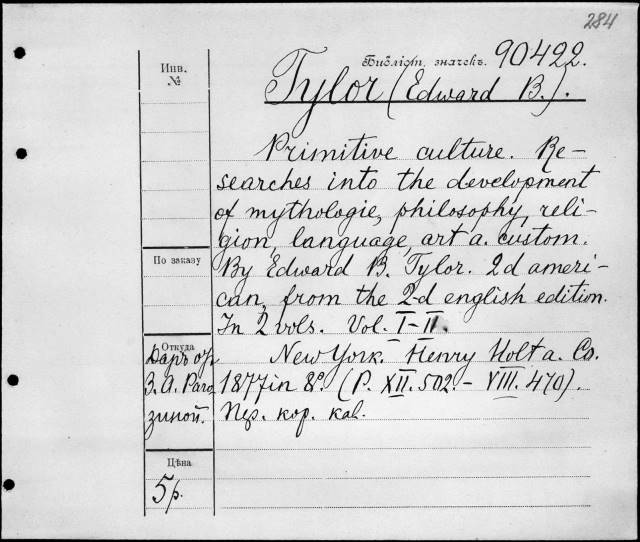 284
Библіот. значекъ. 90422.
Инв.
№
Tylor (Edward B.).
Primitive culture. Re-
searches into the development
of mythologie, philosophy, reli-
gion, language, art a. custom.
По заказу
By Edward B. Tylor. 2d ameri-
can, from the 2-d english edition.
In 2 vols. Vol. I-II.
Откуда
Даръ от
З. А. Раго
зиной.
New York. Henry Holt a. Co.
1877 in 8º. (P. XII. 502. - VIII. 470).
Пер. кор. кав.
Цѣна
5 р.